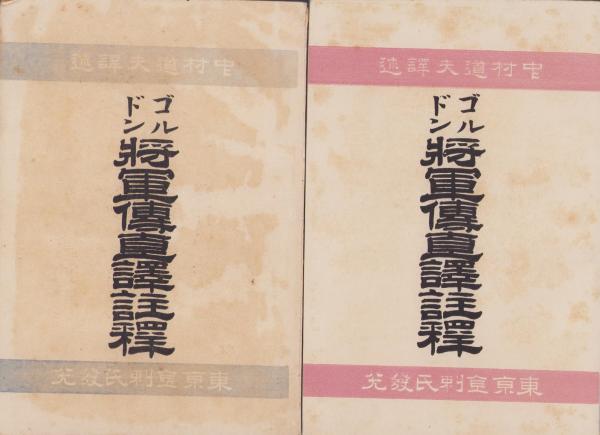 中村道夫譯述
ゴルドン
將軍傳直譯註釋
東京金刺氏發兌
中村道夫譯述
ゴルドン
將軍傳直譯註釋
東京金刺氏發兌